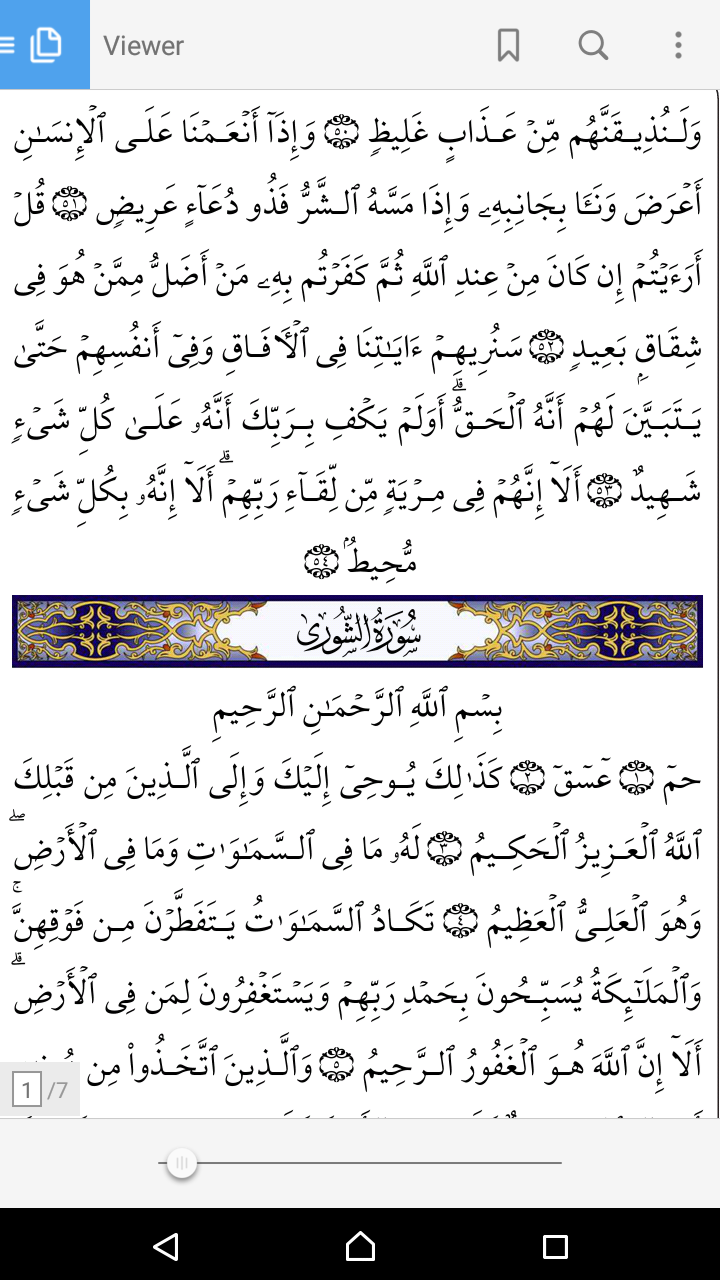 Viewer
وَلَنُذِيقَنَّهُم مِّنۡ عَذَابٍ غَلِيظٖ ٥٠ وَإِذَآ أَنۡعَمۡنَا عَلَى ٱلۡإِنسَٰنِ
أَعۡرَضَ وَنَـَٔا بِجَانِبِهِۦ وَإِذَا مَسَّهُ ٱلشَّرُّ فَذُو دُعَآءٍ عَرِيضٖ ٥١ قُلۡ
أَرَءَيۡتُمۡ إِن كَانَ مِنۡ عِندِ ٱللَّهِ ثُمَّ كَفَرۡتُم بِهِۦ مَنۡ أَضَلُّ مِمَّنۡ هُوَ فِي
شِقَاقِۭ بَعِيدٖ ٥٢ سَنُرِيهِمۡ ءَايَٰتِنَا فِي ٱلۡأٓفَاقِ وَفِيٓ أَنفُسِهِمۡ حَتَّىٰ
يَتَبَيَّنَ لَهُمۡ أَنَّهُ ٱلۡحَقُّۗ أَوَلَمۡ يَكۡفِ بِرَبِّكَ أَنَّهُۥ عَلَىٰ كُلِّ شَيۡءٖ
شَهِيدٌ ٥٣ أَلَآ إِنَّهُمۡ فِي مِرۡيَةٖ مِّن لِّقَآءِ رَبِّهِمۡۗ أَلَآ إِنَّهُۥ بِكُلِّ شَيۡءٖ
مُّحِيطُۢ ٥٤
سُورَةُ الشُّورَىٰ
بِسۡمِ ٱللَّهِ ٱلرَّحۡمَٰنِ ٱلرَّحِيمِ
حمٓ ١ عٓسٓقٓ ٢ كَذَٰلِكَ يُوحِيٓ إِلَيۡكَ وَإِلَى ٱلَّذِينَ مِن قَبۡلِكَ
ٱللَّهُ ٱلۡعَزِيزُ ٱلۡحَكِيمُ ٣ لَهُۥ مَا فِي ٱلسَّمَٰوَٰتِ وَمَا فِي ٱلۡأَرۡضِۖ
وَهُوَ ٱلۡعَلِيُّ ٱلۡعَظِيمُ ٤ تَكَادُ ٱلسَّمَٰوَٰتُ يَتَفَطَّرۡنَ مِن فَوۡقِهِنَّۚ
وَٱلۡمَلَٰٓئِكَةُ يُسَبِّحُونَ بِحَمۡدِ رَبِّهِمۡ وَيَسۡتَغۡفِرُونَ لِمَن فِي ٱلۡأَرۡضِۗ
أَلَآ إِنَّ ٱللَّهَ هُوَ ٱلۡغَفُورُ ٱلرَّحِيمُ ٥ وَٱلَّذِينَ ٱتَّخَذُواْ مِن
1 /7